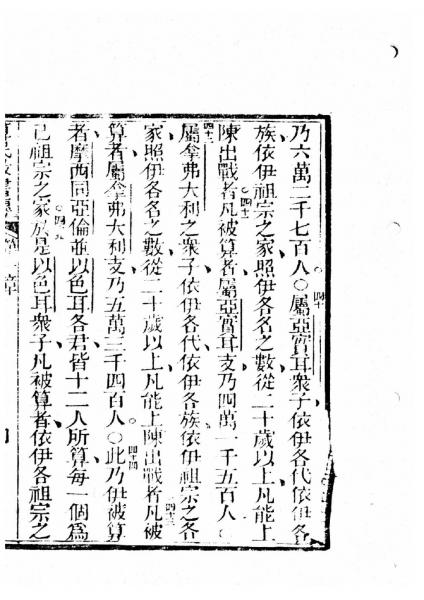 乃六萬二千七百人○四十屬亞實耳衆子依伊各代依伊各
族依伊祖宗之家照伊各名之數從二十歲以上凡能上
陳出戰者凡被算者屬亞實耳支乃四萬一千五百人○
四十二屬拿弗大利之衆子依伊各代依伊各族依伊祖宗之各
家照伊各名之數從二十歲以上凡能上陳出戰者凡被
算者屬拿弗大利支乃五萬三千四百人○四十四此乃伊被算
者摩西同亞倫並以色耳各君皆十二人所算每一個爲
己祖宗之家四十五於是以色耳衆子凡被算者依伊各祖宗之